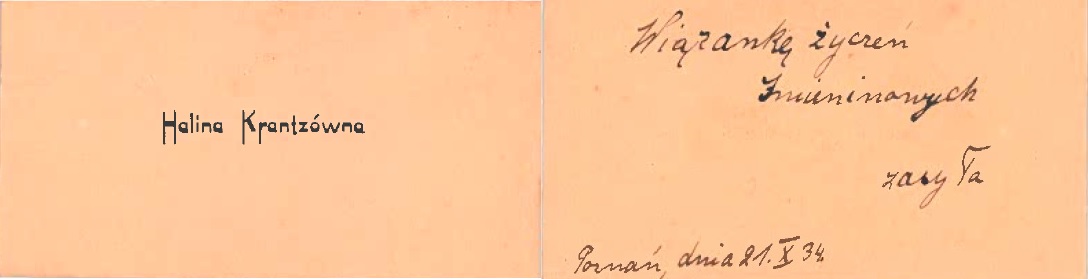 Halina Krantzówna
Wiązankę życzeń
Imieninowych
zasyła
Poznań, dnia 21. X 34.